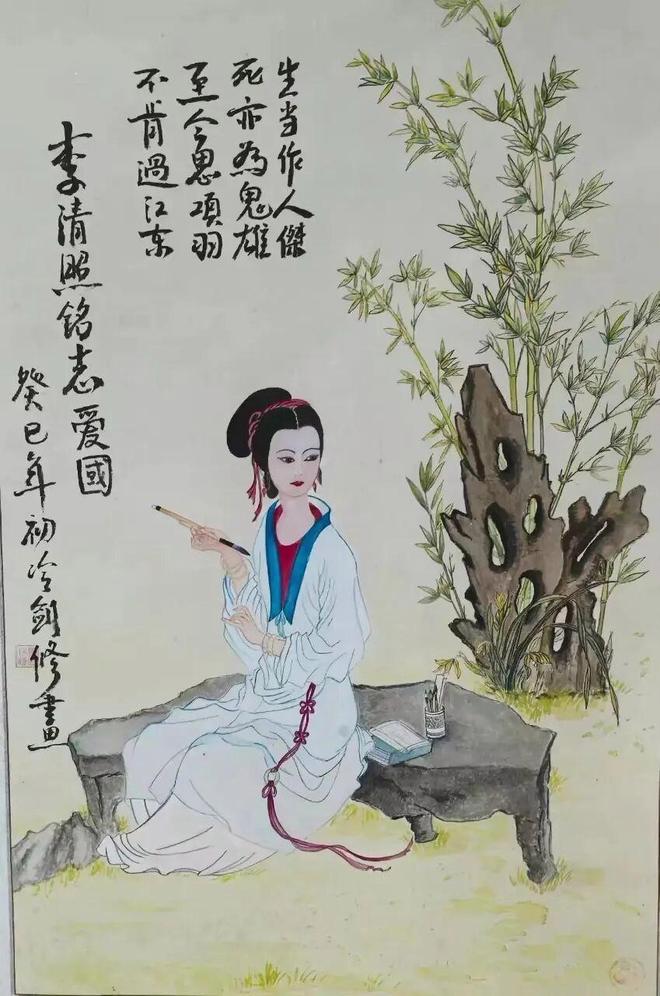 生当作人傑
死亦為鬼雄
至今思項羽
不肯過江东
李清照銘志爱國
癸巳年初冷劍修畫